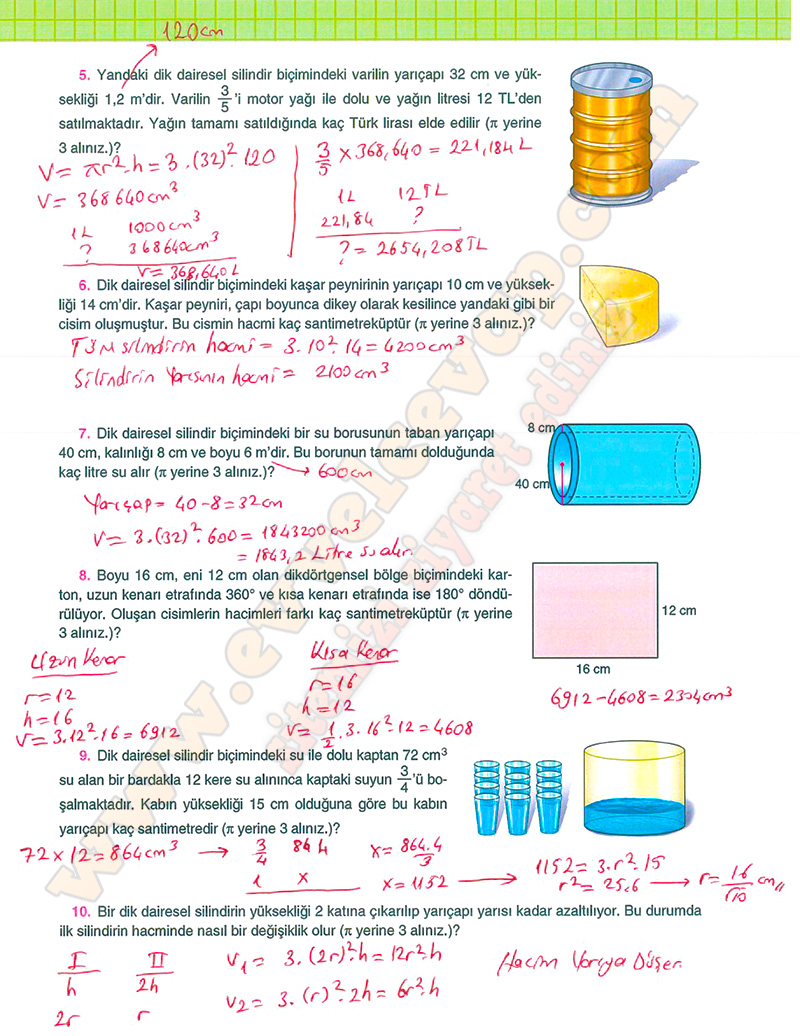 120cm
5. Yandaki dik dairesel silindir biçimindeki varilin yarıçapı 32 cm ve yük-
sekliği 1,2 m'dir. Varilin 3/5'i motor yağı ile dolu ve yağın litresi 12 TL'den
satılmaktadır. Yağın tamamı satıldığında kaç Türk lirası elde edilir (π yerine
3 alınız.)?
V= πr²·h = 3·(32)²·120
V= 368640cm³
1L 1000cm³
? 368640cm³
V=368,640L
3/5 x 368,640 = 221,184L
1L 12TL
221,84 ?
?=2654,208TL
6. Dik dairesel silindir biçimindeki kaşar peynirinin yarıçapı 10 cm ve yüksek-
liği 14 cm'dir. Kaşar peyniri, çapı boyunca dikey olarak kesilince yandaki gibi bir
cisim oluşmuştur. Bu cismin hacmi kaç santimetreküptür (π yerine 3 alınız.)?
Tüm silindirin hacmi = 3·10²·14=4200cm³
Silindirin Yarısının hacmi = 2100cm³
7. Dik dairesel silindir biçimindeki bir su borusunun taban yarıçapı
40 cm, kalınlığı 8 cm ve boyu 6 m'dir. Bu borunun tamamı dolduğunda
kaç litre su alır (π yerine 3 alınız.)? → 600cm
8 cm
40 cm
Yarıçap= 40-8=32cm
V= 3·(32)²·600 = 1843200cm³
= 1843,2 Litre su alır.
8. Boyu 16 cm, eni 12 cm olan dikdörtgensel bölge biçimindeki kar-
ton, uzun kenarı etrafında 360° ve kısa kenarı etrafında ise 180° döndü-
rülüyor. Oluşan cisimlerin hacimleri farkı kaç santimetreküptür (π yerine
3 alınız.)?
12 cm
16 cm
Uzun Kenar
r=12
h=16
V=3·12²·16=6912
Kısa Kenar
r=16
h=12
V= 1/2·3·16²·12=4608
6912-4608=2304cm³
9. Dik dairesel silindir biçimindeki su ile dolu kaptan 72 cm³
su alan bir bardakla 12 kere su alınınca kaptaki suyun 3/4'ü bo-
şalmaktadır. Kabın yüksekliği 15 cm olduğuna göre bu kabın
yarıçapı kaç santimetredir (π yerine 3 alınız.)?
72x12=864cm³ → 3/4 864
1 x
x= 864.4/3
x=1152 →
1152=3·r²·15
r²=25,6 → r=16/√10 cm
10. Bir dik dairesel silindirin yüksekliği 2 katına çıkarılıp yarıçapı yarısı kadar azaltılıyor. Bu durumda
ilk silindirin hacminde nasıl bir değişiklik olur (π yerine 3 alınız.)?
I II
h 2h
2r r
V₁= 3·(2r)²·h=12r²·h
V₂= 3·(r)²·2h=6r²·h
Hacim Yarıya Düşer.
www.evvelcevap.com
sitemizi ziyaret ediniz